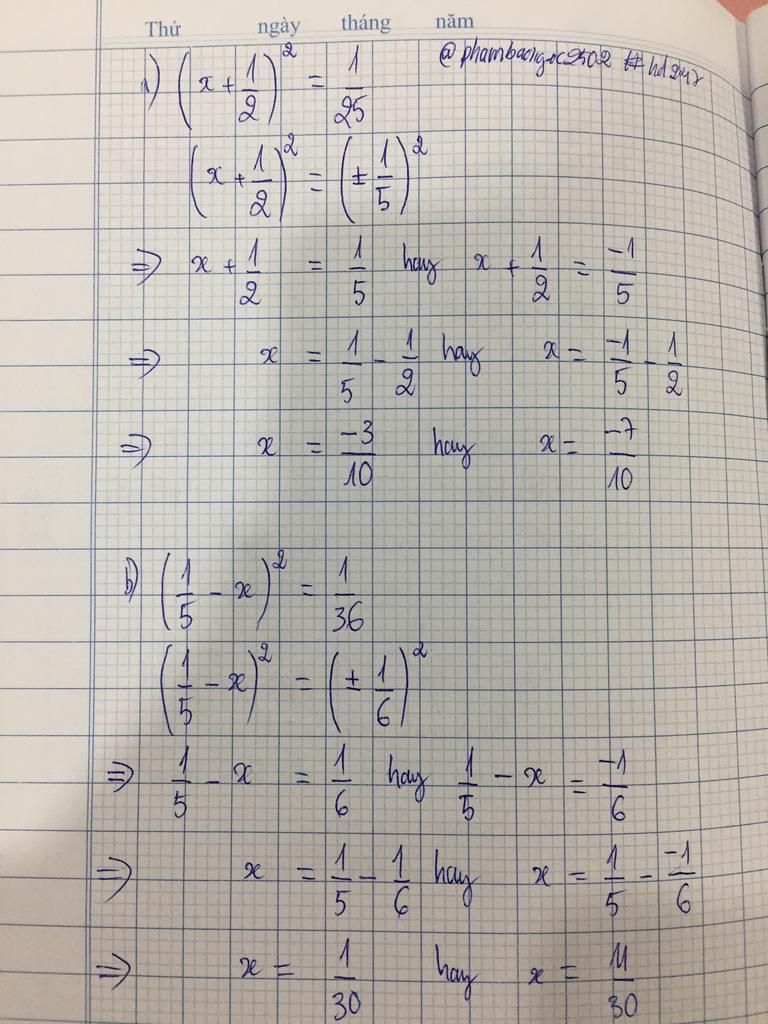 Thứ ngày tháng năm
@phambaongoc2502 #hd247
a) (x + 1/2)² = 1/25
(x + 1/2)² = (± 1/5)²
⇒ x + 1/2 = 1/5 hay x + 1/2 = -1/5
⇒ x = 1/5 - 1/2 hay x = -1/5 - 1/2
⇒ x = -3/10 hay x = -7/10
b) (1/5 - x)² = 1/36
(1/5 - x)² = (± 1/6)²
⇒ 1/5 - x = 1/6 hay 1/5 - x = -1/6
⇒ x = 1/5 - 1/6 hay x = 1/5 - -1/6
⇒ x = 1/30 hay x = 11/30